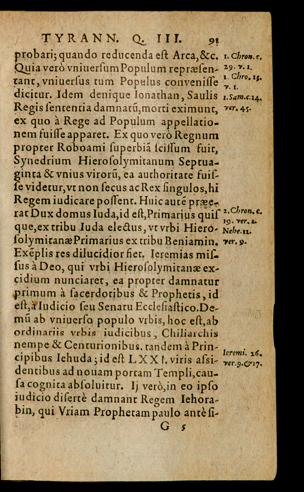 TYRANN. Q. III. 91
probari; quando reducenda est Arca, &c.
Quia verò vniuersum Populum repræsen-
tant, vniuersus tum Populus convenisse
dicitur. Idem denique Ionathan, Saulis
Regis sententia damnatū, morti eximunt,
ex quo à Rege ad Populum appellatio-
nem fuisse apparet. Ex quo verò Regnum
propter Roboami superbiā scissum fuit,
Synedrium Hierosolymitanum Septua-
ginta & vnius virorū, ea authoritate fuis-
se videtur, vt non secus ac Rex singulos, hi
Regem iudicare possent. Huic autē præe-
rat Dux domus Iuda, id est, Primarius quis
que, ex tribu Iuda electus, vt vrbi Hiero-
solymitanæ Primarius ex tribu Beniamin.
Exēplis res dilucidior fiet. Ieremias mis-
sus à Deo, qui vrbi Hierosolymitanæ ex-
cidium nunciaret, ea propter damnatur
primum à sacerdotibus & Prophetis, id
est, à Iudicio seu Senatu Ecclesiastico. De-
mū ab vniuerso populo vrbis, hoc est, ab
ordinariis vrbis iudicibus, Chiliarchis
nempe & Centurionibus. tandem à Prin-
cipibus Iehuda; id est LXXI. viris assi-
dentibus ad nouam portam Templi, cau-
sa cognita absoluitur. Ij verò, in eo ipso
iudicio disertè damnant Regem Iehora-
bin, qui Vriam Prophetam paulo antè si-
G 5
1. Chron. c.
29. v. 1.
1. Chro. 13.
v. 1.
1. Sam. c. 14.
ver. 45.
2. Chron. c.
19. ver. 
Nehe. 11.
ver. 9.
Ieremi. 26.
ver. 9. & 17.